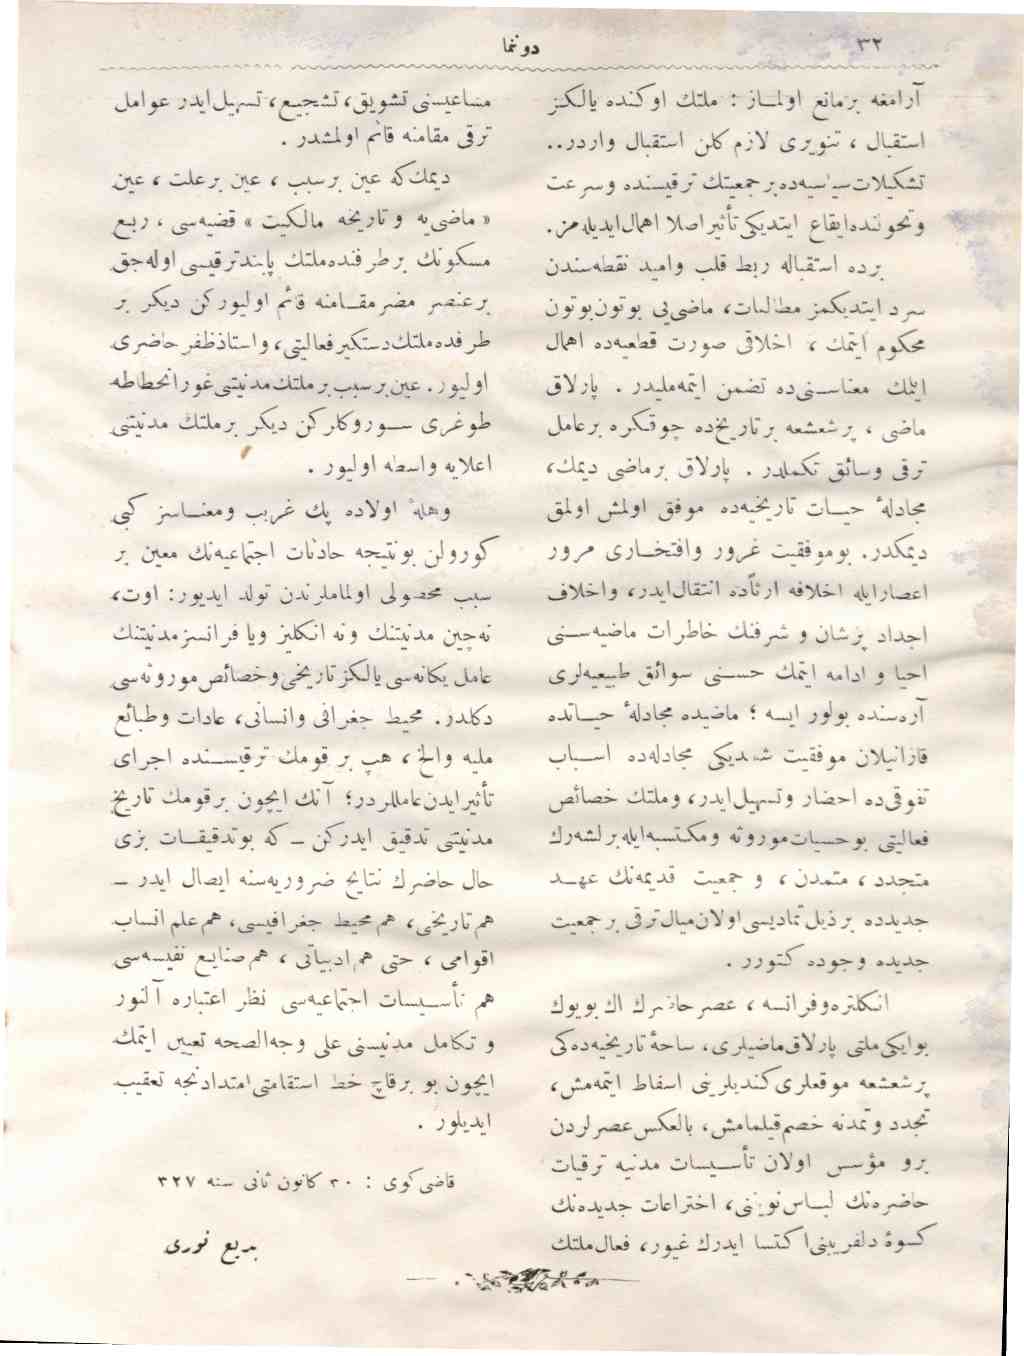 ٣٢
دوننما
آرامغه برمانع اولماز : ملتك اوكنده يالكز
استقبال ، تنويرى لازم كلن استقبال واردر..
تشكيلات سياسيه‌ده بر جمعيتك ترقيسنده وسرعت
وتحولنده ايقاع ايتديكى تأثير اصلا اهمال ايديله‌مز.
برده استقباله ربط قلب واميد نقطه‌سندن
سرد ايتديكمز مطالبات، ماضى‌يى بوتون بوتون
محكوم ايتمك ، اخلاقى صورت قطعيه‌ده اهمال
ايلمك معناسنى‌ده تضمن ايتمه‌مليدر . پارلاق
ماضى ، پرشعشعه بر تاريخ‌ده چوقكره بر عامل
ترقى وسائق تكملدر . پارلاق بر ماضى ديمك،
مجادلهٔ حيات تاريخيه‌ده موفق اولمش اولمق
ديمكدر. بو موفقيت غرور وافتخارى مرور
اعصار ايله اخلافه ارثاًده انتقال ايدر، واخلاف
اجداد پرشان و شرفنك خاطرات ماضيه‌سنى
احيا و ادامه ايتمك حسنى سوائق طبيعيه‌لرى
آره‌سنده بولور ايسه ؛ ماضيده مجادلهٔ حياتده
قازانيلان موفقيت شمديكى مجادله‌ده اسباب
تفوقى‌ده احضار وتسهيل ايدر، وملتك خصائص
فعاليتى بو حسيات موروثه ومكتسبه ايله برلشه‌رك
متجدد، متمدن ، و جمعيت قديمه‌نك عهد
جديدده بر ذيل تماديسى اولان ميال ترقى بر جمعيت
جديده وجوده كتورر .
انكلتره وفرانسه ، عصر حاضرك اك بويوك
بو ايكى ملتى پارلاق ماضيلرى، ساحهٔ تاريخيه‌ده‌كى
پرشعشعه موقعلرى كنديلرينى اسقاط ايتمه‌مش،
تجدد و تمدنه خصم قيلمامش، بالعكس عصرلردن
برو مؤسس اولان تأسيسات مدنيه ترقيات
حاضره‌نك لباس نوينى، اختراعات جديده‌نك
كسوهٔ دلفريبنى اكتسا ايدرك غيور، فعال ملتك
مساعيسنى تشويق، تشجيع، تسهيل ايدر عوامل
ترقى مقامنه قائم اولمشدر .
ديمك كه عين بر سبب ، عين بر علت ، عين
« ماضى‌يه و تاريخه مالكيت » قضيه‌سى ، ربع
مسكونك بر طرفنده ملتك پايبند ترقيسى اوله‌جق
بر عنصر مضر مقامنه قائم اوليوركن ديكر بر
طرفده ملتك دستكير فعاليتى، واستاذ ظفر حاضرى
اوليور. عين بر سبب بر ملتك مدنيتنى غور انحطاطه
طوغرى سوروكلركن ديكر بر ملتك مدنيتنى
اعلايه واسطه اوليور .
وهلهٔ اولاده پك غريب ومعناسز كبى
كورولن بو نتيجه حادثات اجتماعيه‌نك معين بر
سبب محصولى اولماملرندن تولد ايديور: اوت،
نه چين مدنيتنك ونه انكليز ويا فرانسز مدنيتنك
عامل يكانه‌سى يالكز تاريخى و خصائص موروثه‌سى
دكلدر. محيط جغرافى وانسانى، عادات وطبائع
مليه والخ، هپ بر قومك ترقيسنده اجراى
تأثير ايدن عامللردر؛ آنك ايچون بر قومك تاريخ
مدنيتنى تدقيق ايدركن — كه بو تدقيقات بزى
حال حاضرك نتايج ضروريه‌سنه ايصال ايدر —
هم تاريخى، هم محيط جغرافيسى، هم علم انساب
اقوامى ، حتى هم ادبياتى ، هم صنايع نفيسه‌سى
هم تأسيسات اجتماعيه‌سى نظر اعتباره آلنور
و تكامل مدنيسنى على وجه الصحه تعيين ايتمك
ايچون بو بر قاچ خط استقامتى امتدادنجه تعقيب
ايديلور .
قاضى كوى : ٣٠ كانون ثانى سنه ٣٢٧
بديع نورى